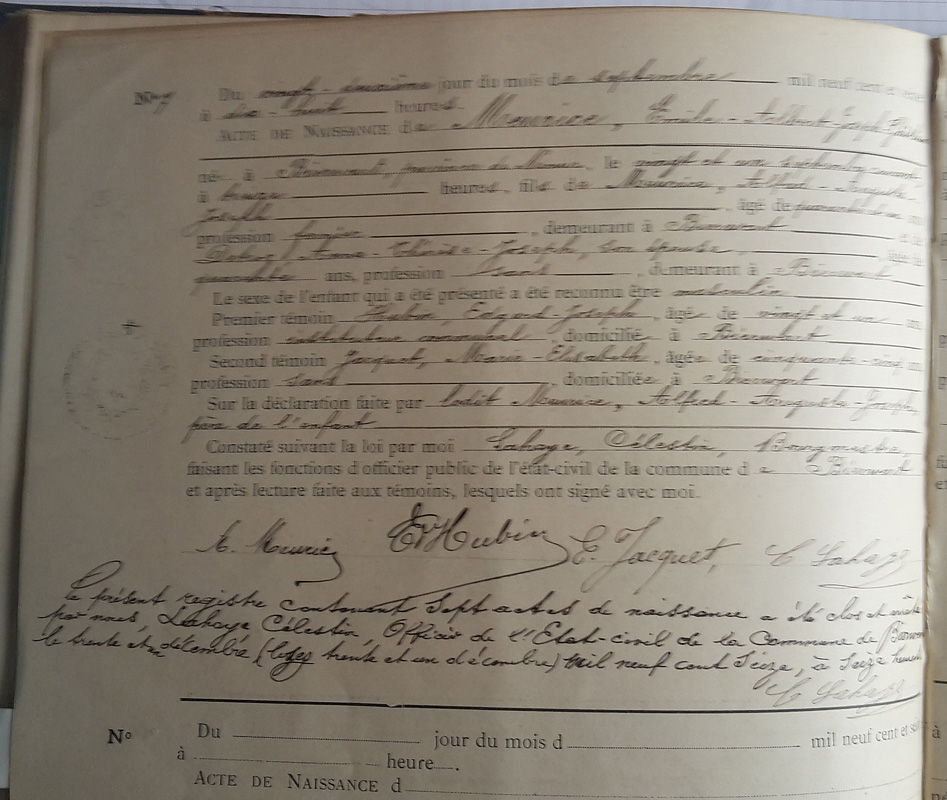 N° 7 Du vingt-deuxième jour du mois de septembre mil neuf cent et
à dix-huit heures.
ACTE DE NAISSANCE de Meurice, Émile-Albert-Joseph
né à province de Namur, le vingt et un septembre
à heures, fils de Meurice, Alfred-Auguste-
Joseph, âgé de quarante et un ans,
profession fermier, demeurant à
Anna-Thérèse-Joseph, son épouse,
ans, profession sans, demeurant à
Le sexe de l'enfant qui a été présenté a été reconnu être masculin
Premier témoin Hubin, Edgard-Joseph, âgé de vingt et un ans,
profession instituteur communal, domicilié à
Second témoin Jacquet, Marie-Elisabeth, âgée de cinquante-cinq ans,
profession sans, domiciliée à
Sur la déclaration faite par ledit Meurice, Alfred-Auguste-Joseph
père de l'enfant
Constaté suivant la loi par moi Lahaye, Célestin, Bourgmestre,
faisant les fonctions d'officier public de l'état-civil de la commune de
et après lecture faite aux témoins, lesquels ont signé avec moi.
A. Meurice E. Hubin E. Jacquet, C. Lahaye
Le présent registre contenant sept actes de naissance a été clos et arrêté
par nous, Lahaye Célestin, Officier de l'Etat-civil de la Commune de
le trente et un décembre (lisez trente et un décembre) mil neuf cent seize, à seize heures
C. Lahaye
N° Du jour du mois d mil neuf cent et
à heure .
ACTE DE NAISSANCE d